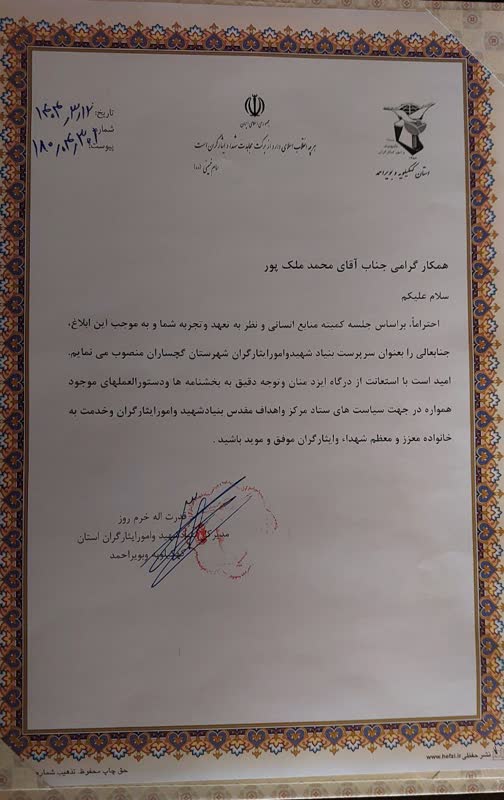 جمهوری اسلامی ایران
هر چه انقلاب اسلامی دارد از برکت مجاهدت شهدا و ایثارگران است
امام خمینی (ره)
استان کهگیلویه و بویراحمد
تاریخ: ۱۴۰۴٫۳٫۱۲
شماره
پیوست:
همکار گرامی جناب آقای محمد ملک پور
سلام علیکم
احتراماً، براساس جلسه کمیته منابع انسانی و نظر به تعهد وتجربه شما و به موجب این ابلاغ،
جنابعالی را بعنوان سرپرست بنیاد شهیدوامورایثارگران شهرستان گچساران منصوب می نمایم.
امید است با استعانت از درگاه ایزد منان وتوجه دقیق به بخشنامه ها ودستورالعملهای موجود
همواره در جهت سیاست های ستاد مرکز واهداف مقدس بنیادشهید وامورایثارگران وخدمت به
خانواده معزز و معظم شهدا، وایثارگران موفق و موید باشید .
قدرت اله خرم روز
مدیرکل بنیاد شهید وامورایثارگران استان
کهگیلویه وبویراحمد
نشر حفظی www.hefzi.ir
حق چاپ محفوظ. تذهیب شماره